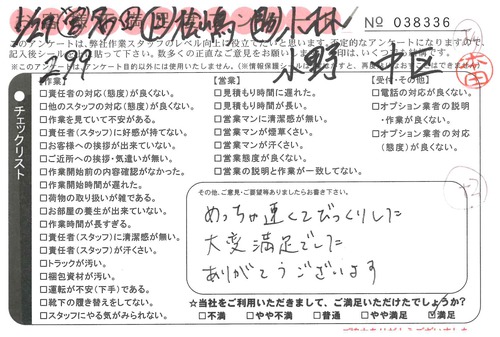 No 038336
このアンケートは、弊社作業スタッフのレベル向上に役立てたいと思います。不定的なアンケートになりますので、
【作業】
□責任者の対応(態度)が良くない。
□他のスタッフの対応(態度)が良くない。
□作業を見ていて不安がある。
□責任者(スタッフ)に好感が持てない。
□お客様への挨拶が出来ていない。
□ご近所への挨拶・気遣いが無い。
□作業開始前の内容確認がなかった。
□作業開始時間が遅れた。
□荷物の取り扱いが雑である。
□お部屋の養生が出来ていない。
□作業時間が長すぎる。
□責任者(スタッフ)に清潔感が無い。
□責任者(スタッフ)が汗くさい。
□トラックが汚い。
□梱包資材が汚い。
□運転が不安(下手)である。
□靴下の履き替えをしてない。
□スタッフにやる気がみられない。
【営業】
□見積もり時間に遅れた。
□見積もり時間が長い。
□営業マンに清潔感が無い。
□営業マンが煙草くさい。
□営業マンが汗くさい。
□営業態度が良くない。
□営業の説明と作業が一致してない。
【受付・その他】
□電話の対応が良くない。
□オプション業者の説明
・作業が良くない。
□オプション業者の対応
(態度)が良くない。
チェックリスト
その他、ご意見・ご要望等ありましたらお書き下さい。
めっちゃ速くてびっくりした
大変満足でした
ありがとうございます
☆当社をご利用いただきまして、ご満足いただけたでしょうか?
□不満 □やや不満 □普通 □やや満足 ☑満足